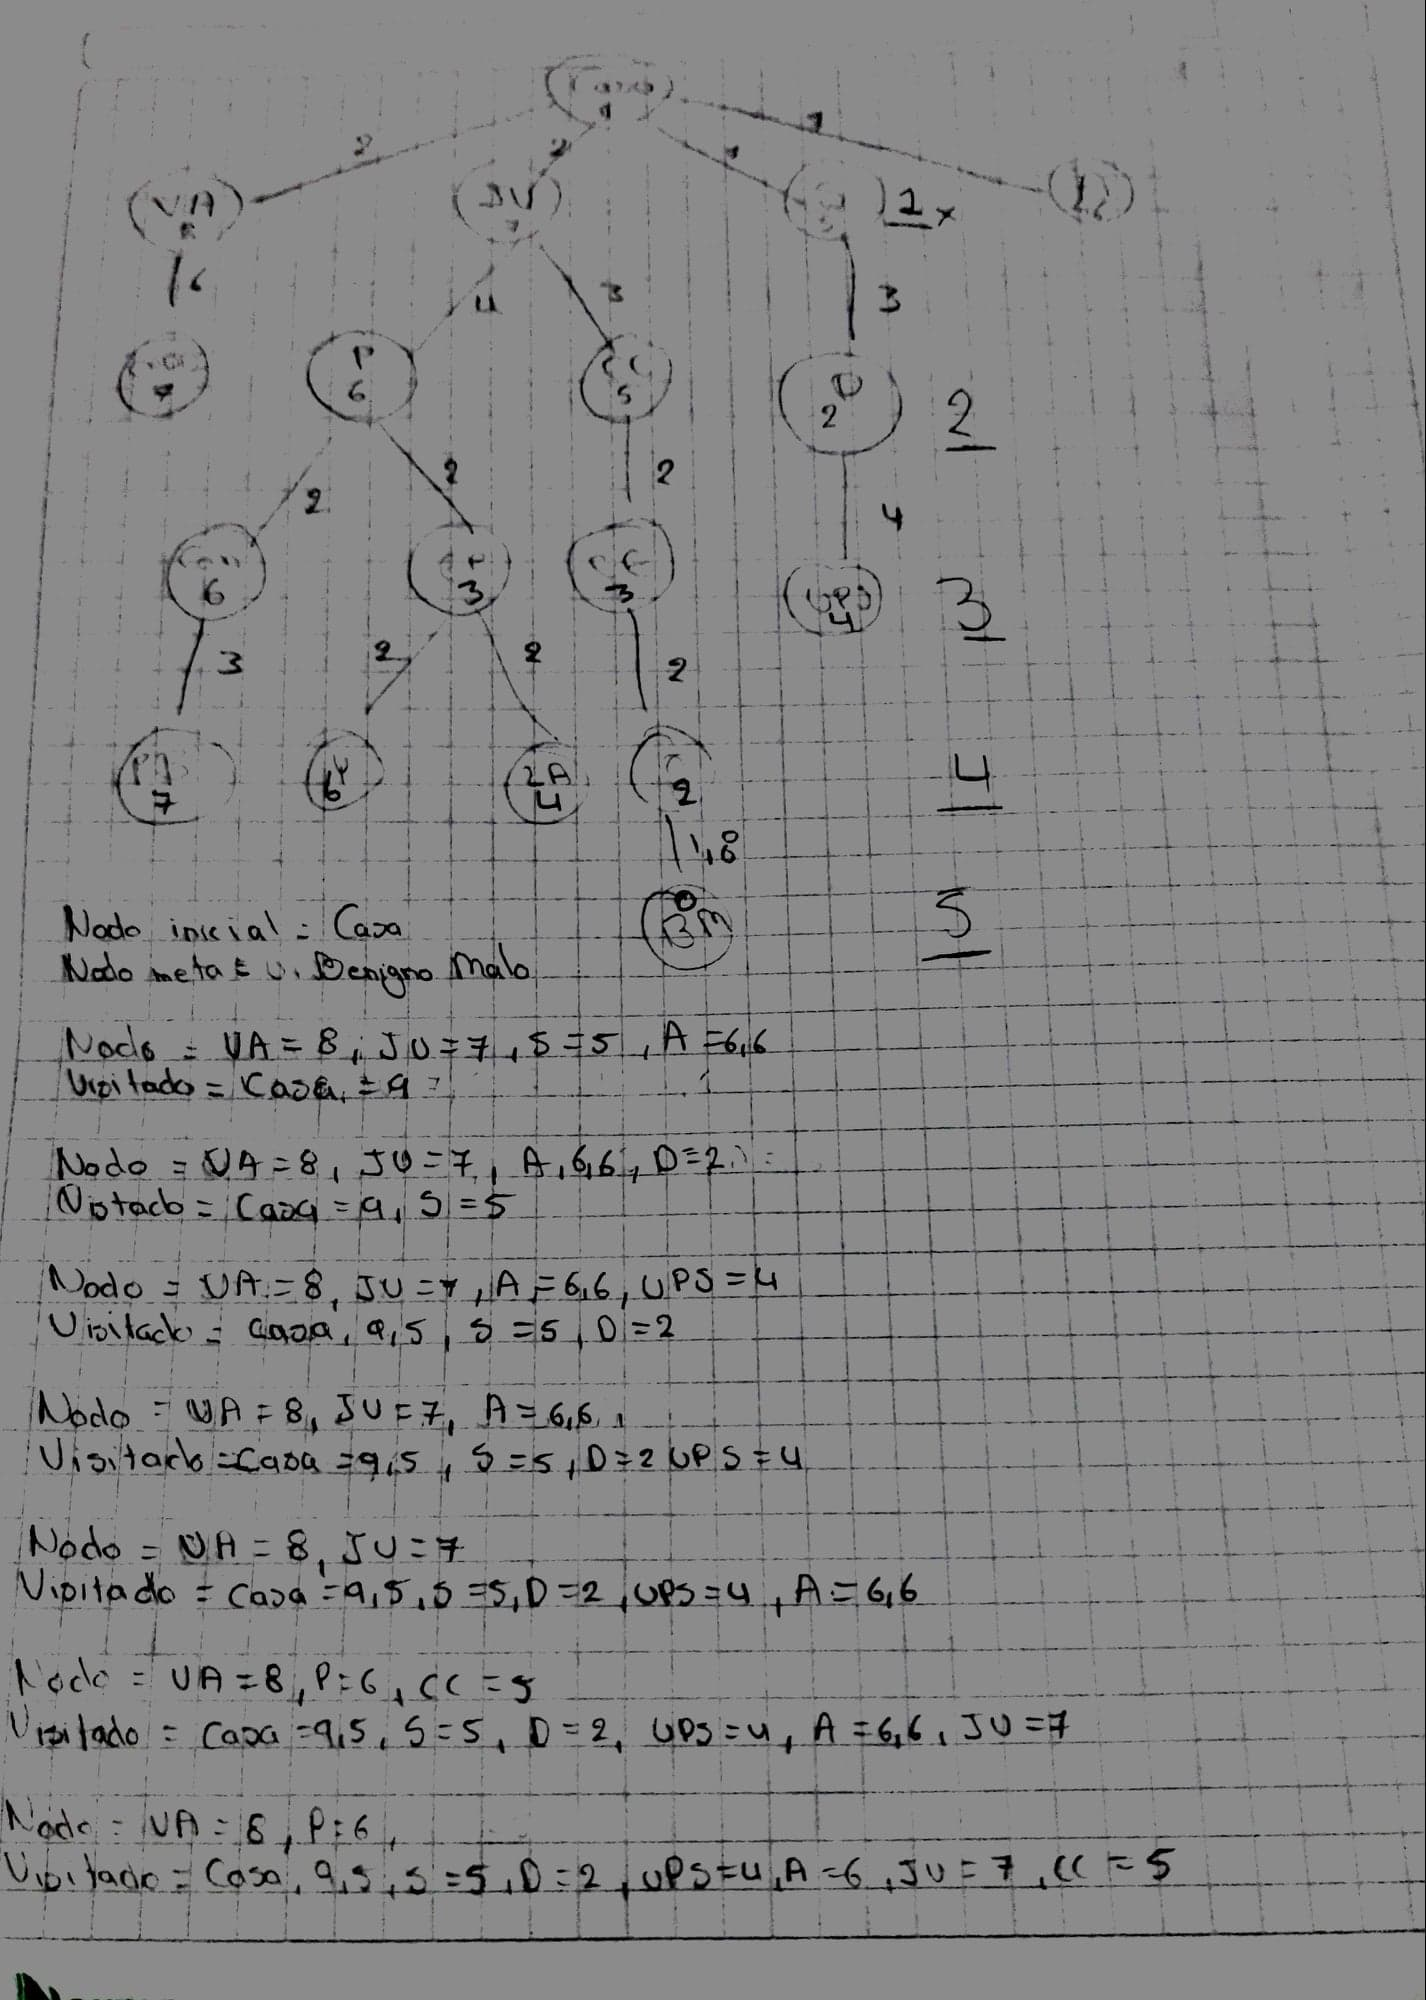 Casa
9
2
2
1
1
VA
8
JU
7
5
1 x
6
4
3
3
P
6
CC
5
D
2
2
2
2
2
4
6
3
3
UPS
4
3
3
2
2
2
7
6
ZA
4
2
4
1,8
0
BM
5
Nodo inicial = Casa
Nodo meta = U. Benigno Malo
Nodo = VA = 8, JU = 7, S = 5, A = 6,6
Visitado = Casa = 9
Nodo = VA = 8, JU = 7, A, 6,6, D = 2
Vistado = Casa = 9, S = 5
Nodo = VA = 8, JU = 7, A = 6,6, UPS = 4
Visitado = Casa, 9,5, S = 5, D = 2
Nodo = VA = 8, JU = 7, A = 6,6,
Visitado = Casa = 9,5, S = 5, D = 2 UPS = 4
Nodo = VA = 8, JU = 7
Visitado = Casa = 9,5, S = 5, D = 2, UPS = 4, A = 6,6
Nodo = VA = 8, P = 6, CC = 5
Visitado = Casa = 9,5, S = 5, D = 2, UPS = 4, A = 6,6, JU = 7
Nodo = VA = 8, P = 6,
Visitado = Casa, 9,5, S = 5, D = 2, UPS = 4, A = 6, JU = 7, CC = 5